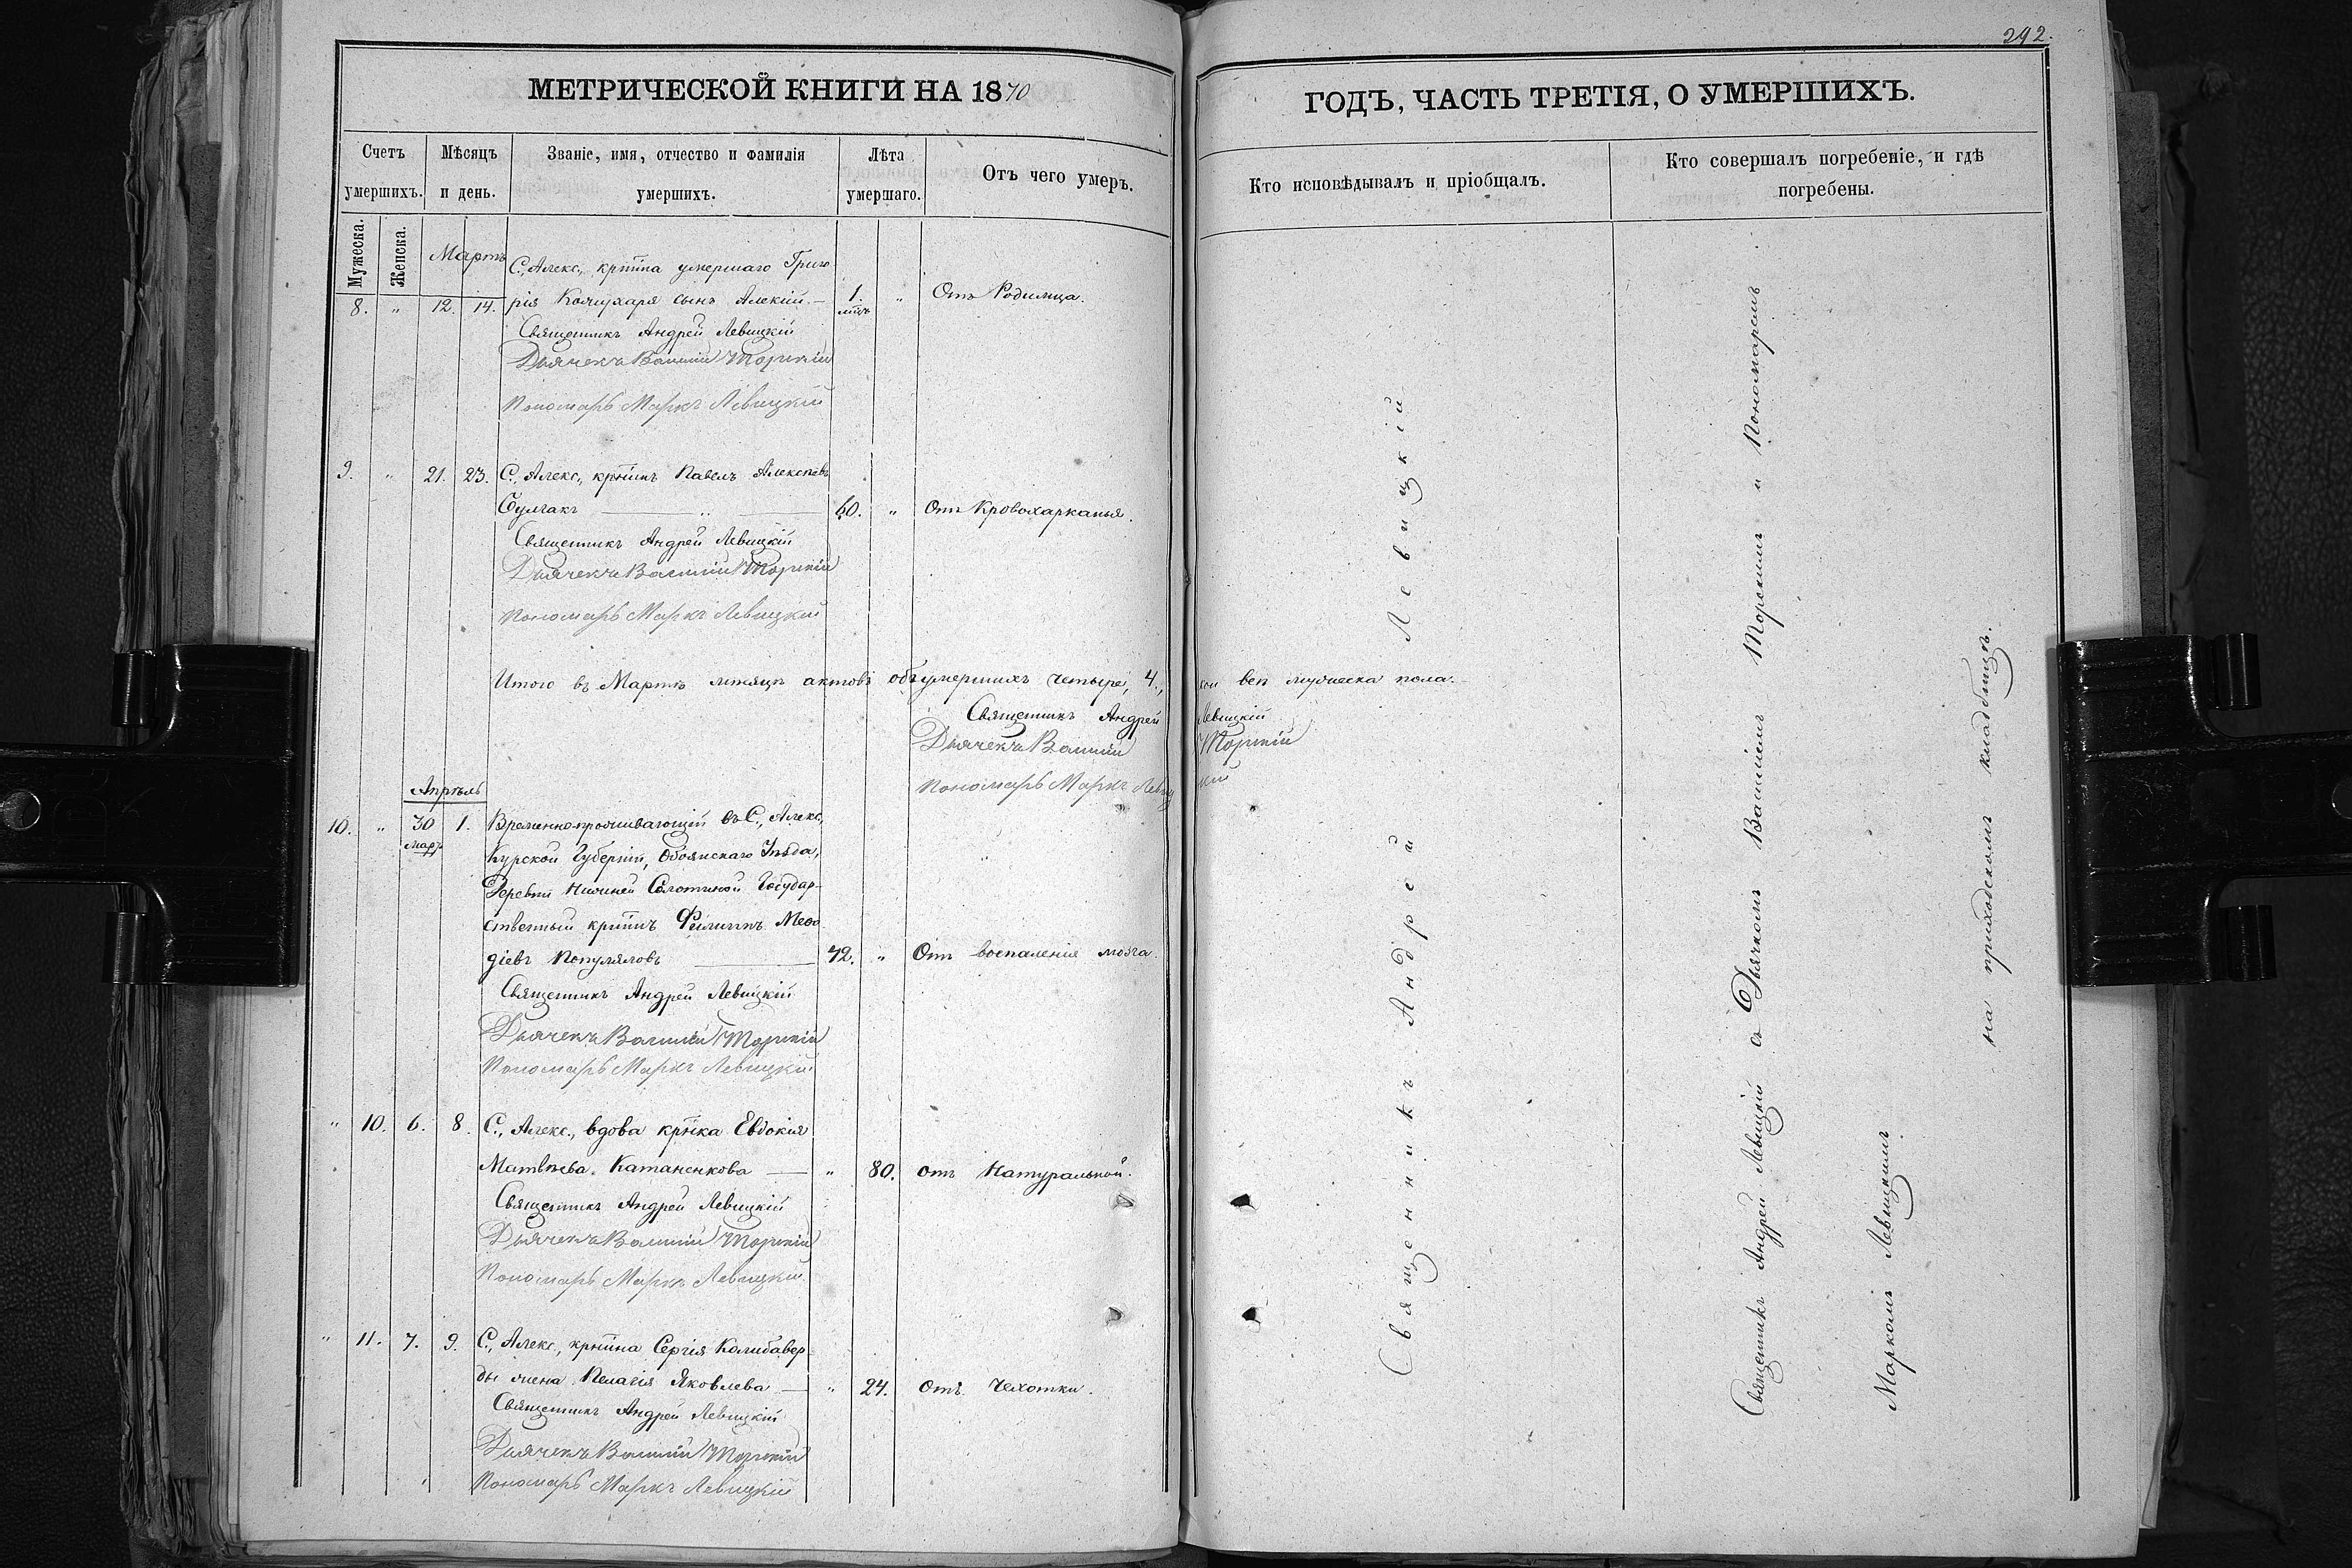 292.
МЕТРИЧЕСКОЙ КНИГИ НА 1870
ГОДЪ, ЧАСТЬ ТРЕТІЯ, О УМЕРШИХЪ.
Счетъ умершихъ.
Мѣсяцъ и день.
Званіе, имя, отчество и фамилія умершихъ.
Лѣта умершаго.
Отъ чего умеръ.
Кто исповѣдывалъ и пріобщалъ.
Кто совершалъ погребеніе, и гдѣ погребены.
Мужеска.
Женска.
Мартъ
С., Алекс., крт̃ина умершаго Григо
8. " 12. 14. рія сынъ Алексій. — 1. мц̃ъ " Отъ Родимца.
Священникъ Андрей Левицкій
Дьячекъ Василій Торскій
Пономарь Маркъ Левицкій
9. " 21. 23. С., Алекс., крт̃инъ Павелъ Алексѣевъ
— " — 60. " Отъ Кровохарканья.
Священникъ Андрей Левицкій
Дьячекъ Василій Торскій
Пономарь Маркъ Левицкій
Итого въ Мартѣ мѣсяцѣ актовъ объ умершихъ четыре, 4., кои всѣ мужеска пола.
Священникъ Андрей Левицкій
Дьячекъ Василій Торскій
Пономарь Маркъ Левицкій
Апрѣль
10. " 30 Мар. 1. Временнопроживающій въ С., Алекс.,
Курской Губерніи, Обоянскаго Уѣзда,
Деревни Нижней Солотиной Государ-
ственный крт̃инъ Филиппъ Меѳо
діевъ — " Отъ воспаленія мозга.
Священникъ Андрей Левицкій
Дьячекъ Василій Торскій
Пономарь Маркъ Левицкій
" 10. 6. 8. С., Алекс., вдова крт̃ка Евдокія
Матвѣева Катаненкова — " 80. отъ Натуральной.
Священникъ Андрей Левицкій
Дьячекъ Василій Торскій
Пономарь Маркъ Левицкій
" 11. 7. 9. С., Алекс., крт̃ина Сергія Колибавер-
ды жена Пелагія Яковлева — " 24. отъ Чахотки.
Священникъ Андрей Левицкій
Дьячекъ Василій Торскій
Пономарь Маркъ Левицкій
Священникъ Андрей Левицкій
Священникъ Андрей Левицкій съ Дьячкомъ Василіемъ Торскимъ и Пономаремъ
Маркомъ Левицкимъ
на приходскомъ кладбищѣ.